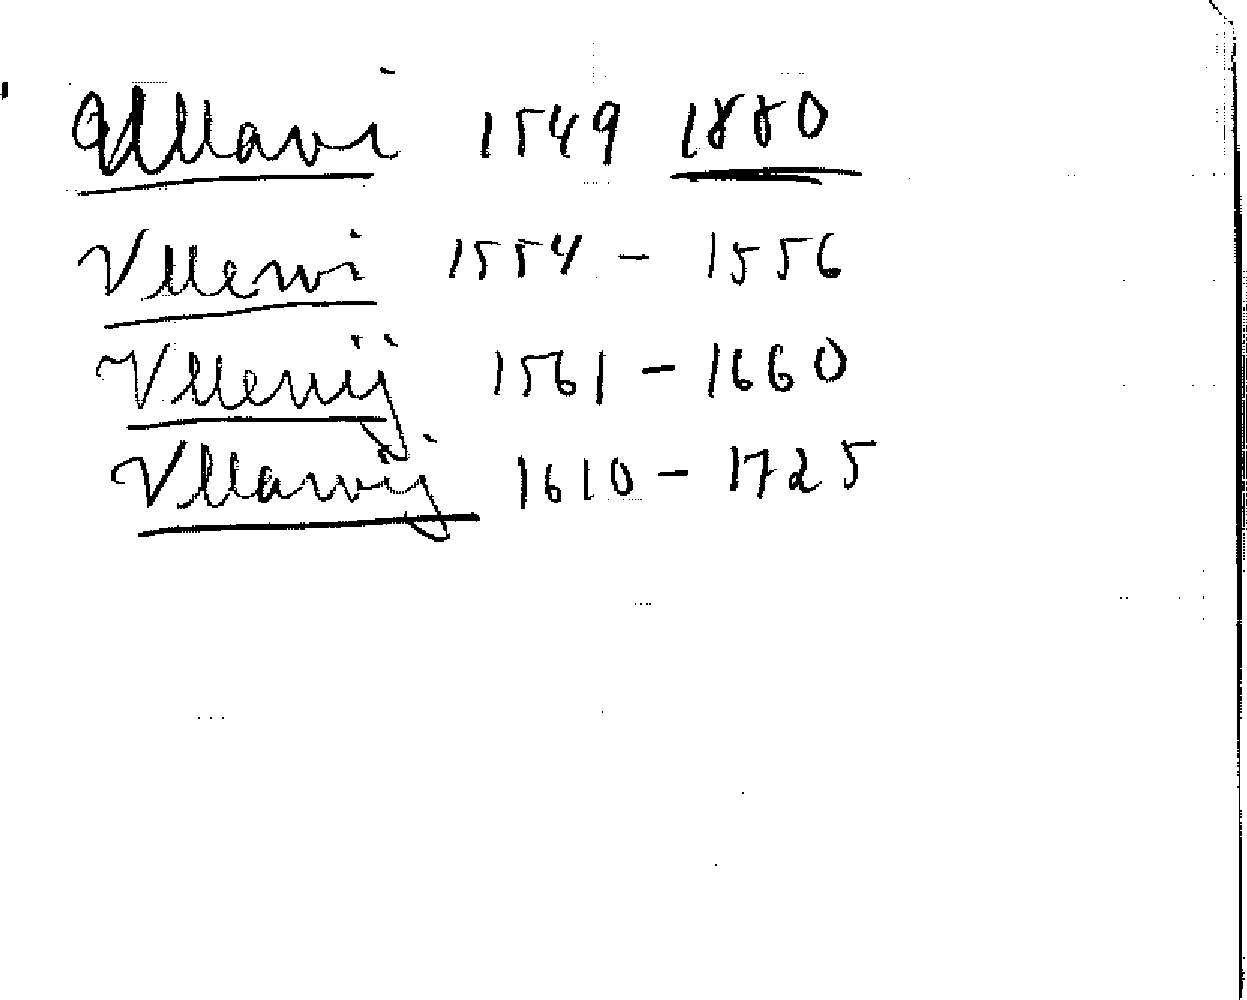 Ullavi 1549 1880
Vllevvi 1554 - 1556
Vllevij 1561 - 1660
Vllavvij 1610 - 1725